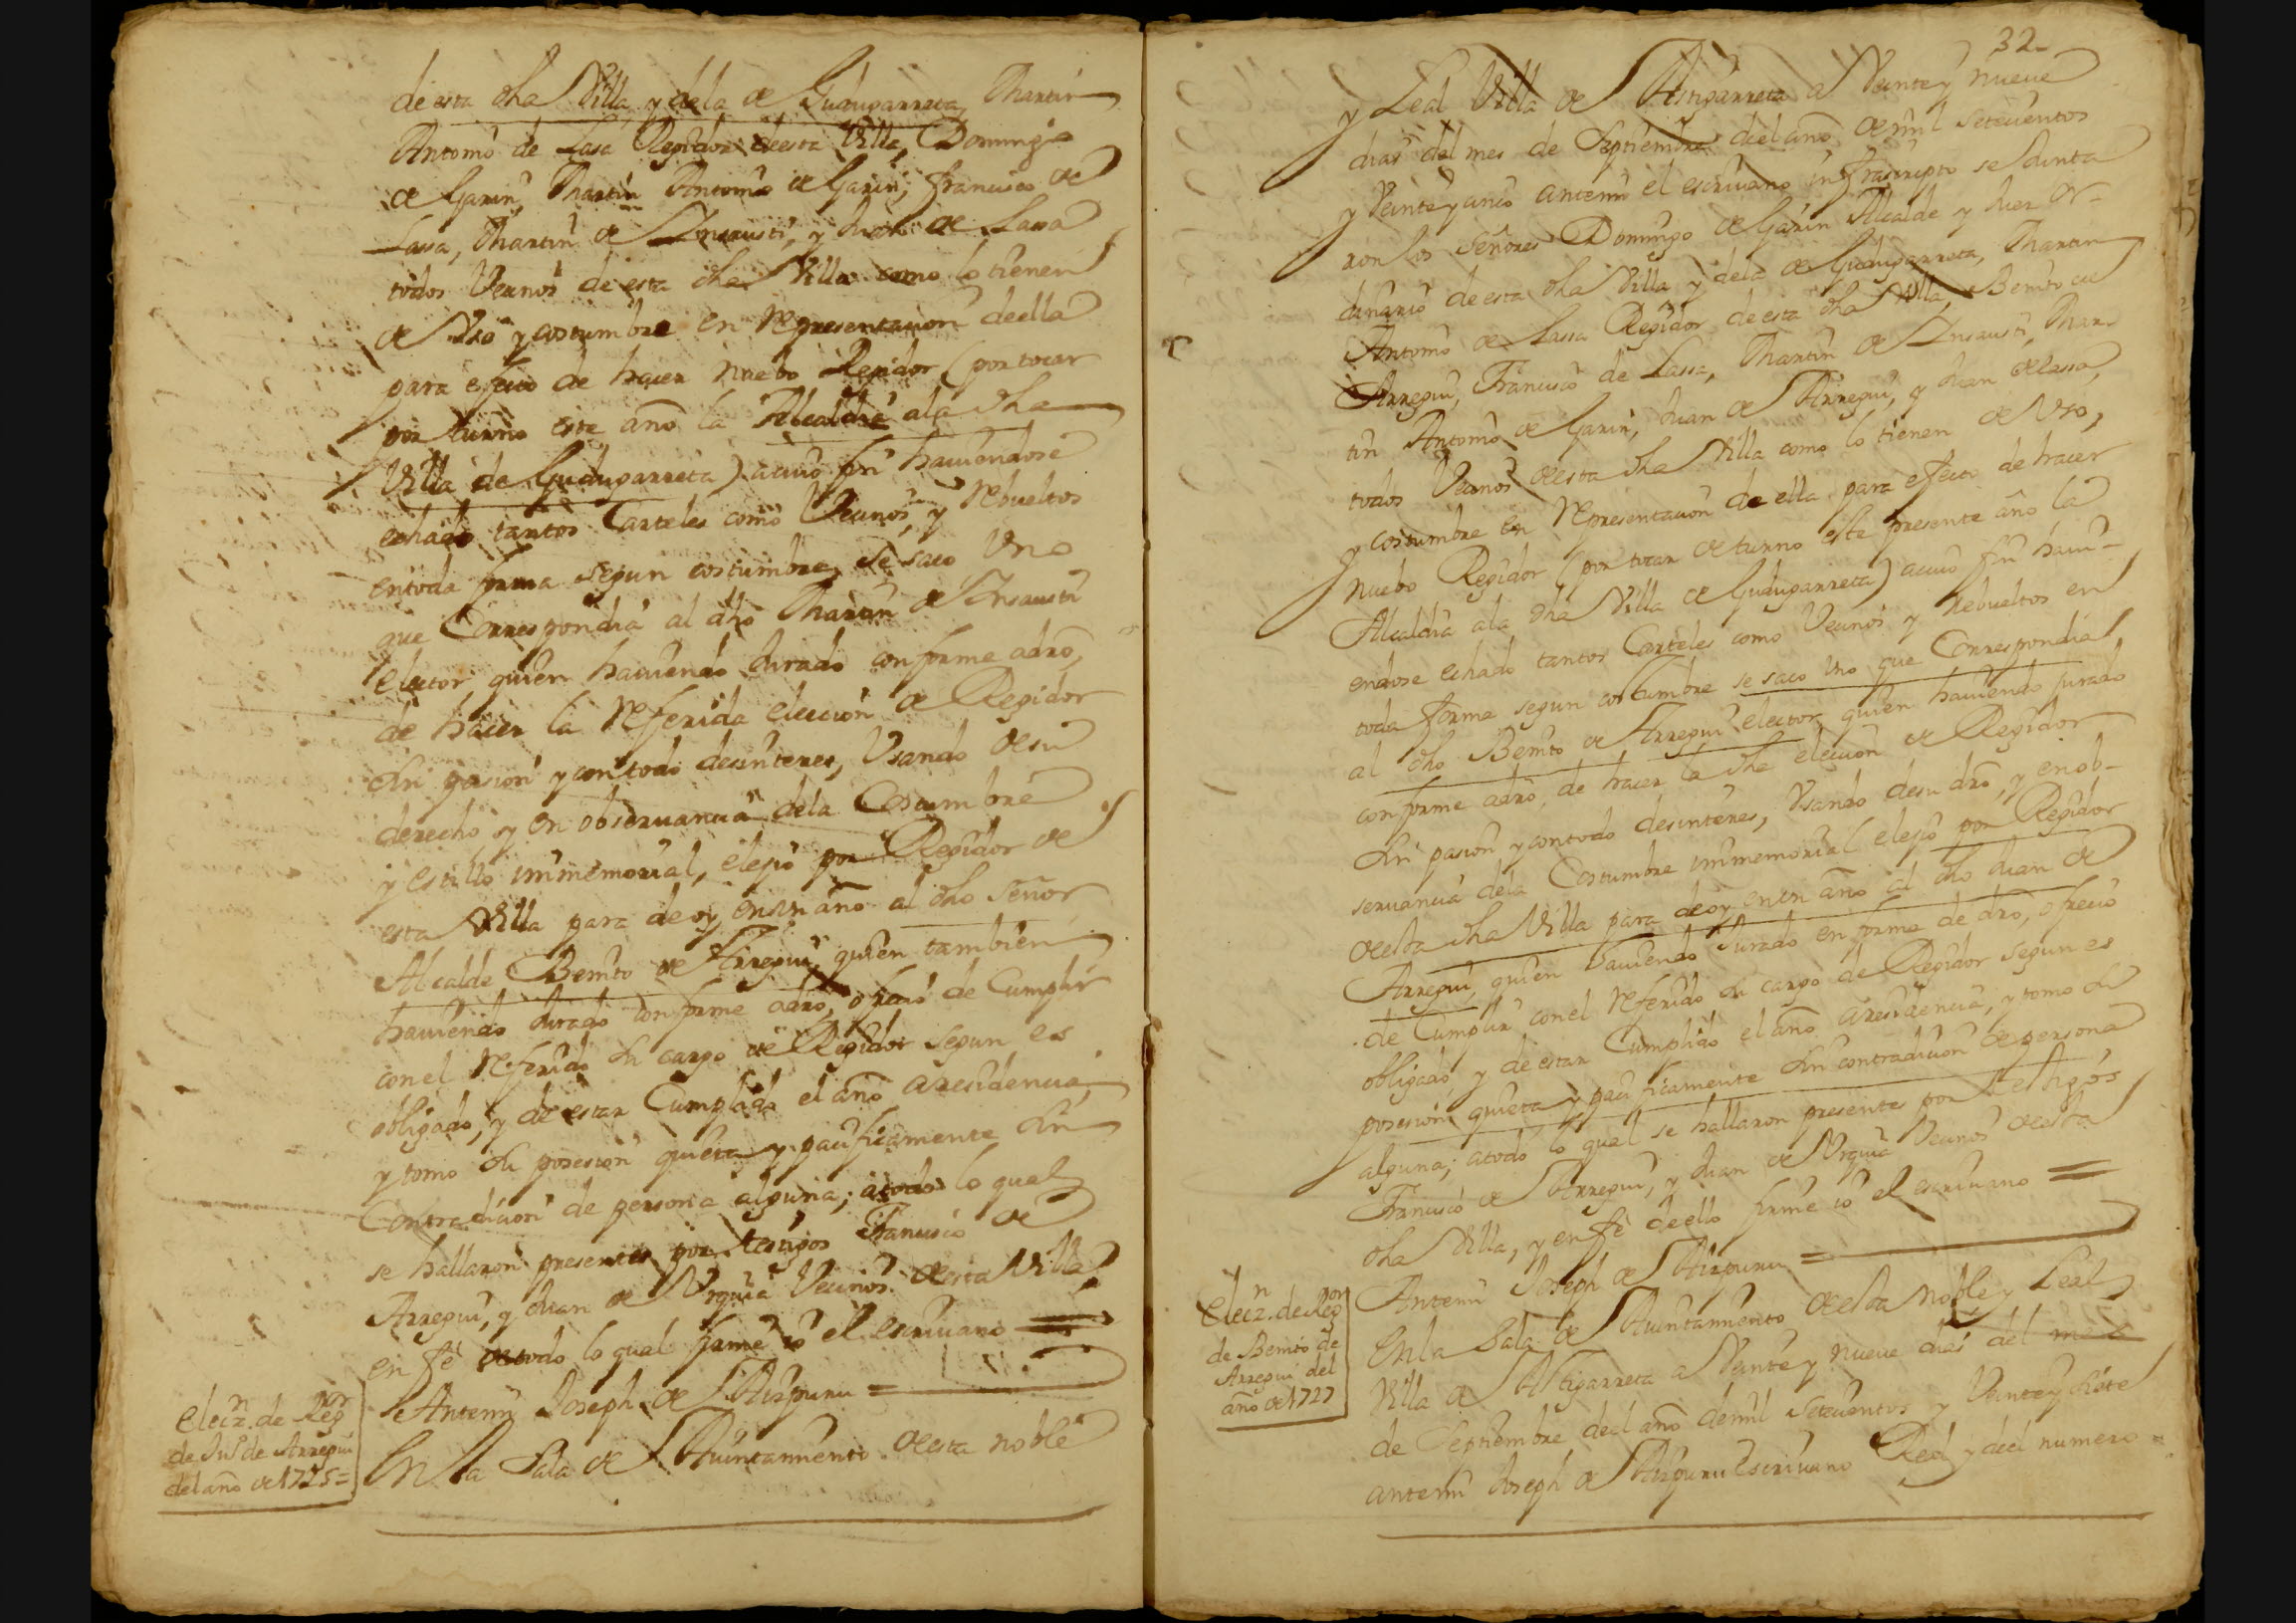 de esta dha Villa, y dela de Gudugarreta, Martin
Antonio de Lasa Regidor de esta Villa, Domingo
de Garin, Martin Antonio de Garin, Francisco de
Lassa, Martin de Insausti, y Juan de Lassa
todos Vecinos de esta dha Villa como lo tienen
de Vso y costumbre en representacion de ella
para efecto de hacer nuebo Regidor (por tocar
por turno este año la Alcaldia ala dha
Villa de Gudugarreta) a cuio fin haviendose
echado tantos Carteles como Vecinos, y rebueltos
entoda forma segun costumbre, se saco Vno
que Correspondia al dho Martin de Insausti
elector, quien haviendo Jurado conforme a dro,
de hacer la referida eleccion de Regidor
sin pasion y con todo desinteres, Vsando de su
derecho, y en observancia dela Costumbre
y estillo immemorial, elejio por Regidor de
esta Villa para de oy en un año al dho Señor
Alcalde Benito de Arregui, quien tambien
haviendo Jurado conforme a dro, ofrecio de Cumplir
con el referido su cargo de Regidor segun es
obligado, y de estar Cumplido el año a residencia,
y tomo su posesion quieta y pacificamente sin
Contradicion de persona alguna; a todo lo qual
se hallaron presentes por testigos Francisco de
Arregui, y Juan de Vrquia Vecinos de esta Villa,
en fe de todo lo qual firme io el escrivano =
Antemi Joseph de Aizpuru =
Elecz.n de Reg.or
de Ju.n de Arregui
del año de 1725 =
En la Sala de Aiuntamiento de esta noble
32
y Leal Villa de Astigarreta a Veinte y nueve
dias del mes de Septiembre de el año de mil setecientos
y Veinte y cinco antemi el escrivano infrascripto se Junta
ron los Señores Domingo de Garin Alcalde y Juez or-
dinario de esta dha Villa y dela de Gudugarreta, Martin
Antonio de Lassa Regidor de esta dha Villa, Benito de
Arregui, Francisco de Lassa, Martin de Insausti, Mar-
tin Antonio de Garin, Juan de Arregui, y Juan de Lassa,
todos Vecinos de esta dha Villa como lo tienen de Vso,
y costumbre en representacion de ella para efecto de hacer
nuebo Regidor (por tocar de turno este presente año la
Alcaldia ala dha Villa de Gudugarreta) a cuio fin havi-
endose echado tantos Carteles como Vecinos y rebueltos en
toda forma segun costumbre se saco Vno que Correspondia
al dho Benito de Arregui elector, quien haviendo jurado
conforme a dro, de hacer la dha eleccion de Regidor
sin pasion y con todo desinteres, Vsando de su dro, y en ob-
servancia dela Costumbre immemorial elejio por Regidor
de esta dha Villa para de oy en un año al dho Juan de
Arregui, quien haviendo Jurado en forma de dro, ofrecio
de Cumplir con el referido su cargo de Regidor segun es
obligado, y de estar Cumplido el año a residencia, y tomo su
posesion quieta y pacificamente sin contradicion de persona
alguna; a todo lo qual se hallaron presentes por testigos
Francisco de Arregui, y Juan de Vrquia Vecinos de esta
dha Villa, y en fe de ello firme io el escrivano =
Antemi Joseph de Aizpuru =
Elecz.n de Reg.or
de Benito de
Arregui del
año de 1727
En la Sala de Aiuntamiento de esta noble y Leal
Villa de Astigarreta a Veinte y nueve dias del mes
de Septiembre de el año de mil setecientos y Veinte y siete
antemi Joseph de Aizpuru Escrivano Real y de el numero